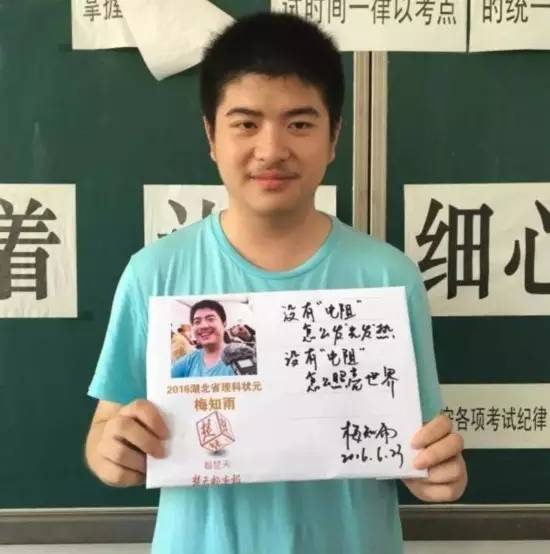 掌握
试时间一律以考点
的统一
着
细心
没有"电阻"
怎么发光发热
没有"电阻"
怎么照亮世界
2016湖北省理科状元
梅知雨
楚天
梅知雨
2016.6.23
各项考试纪律